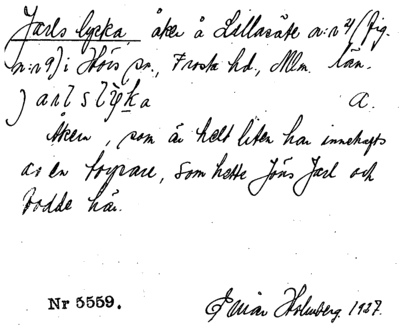 Jarls lycka, åker å Lillasäte n:r 4 (fig.
n:r 9) i Hörs sn., Frosta hd., Mlm. län.
jarlslyka a.
Åkern, som är helt liten har innehafts
av en torpare, som hette Jöns Jarl och
bodde här.
Nr 5559. Einar Holmberg. 1927.